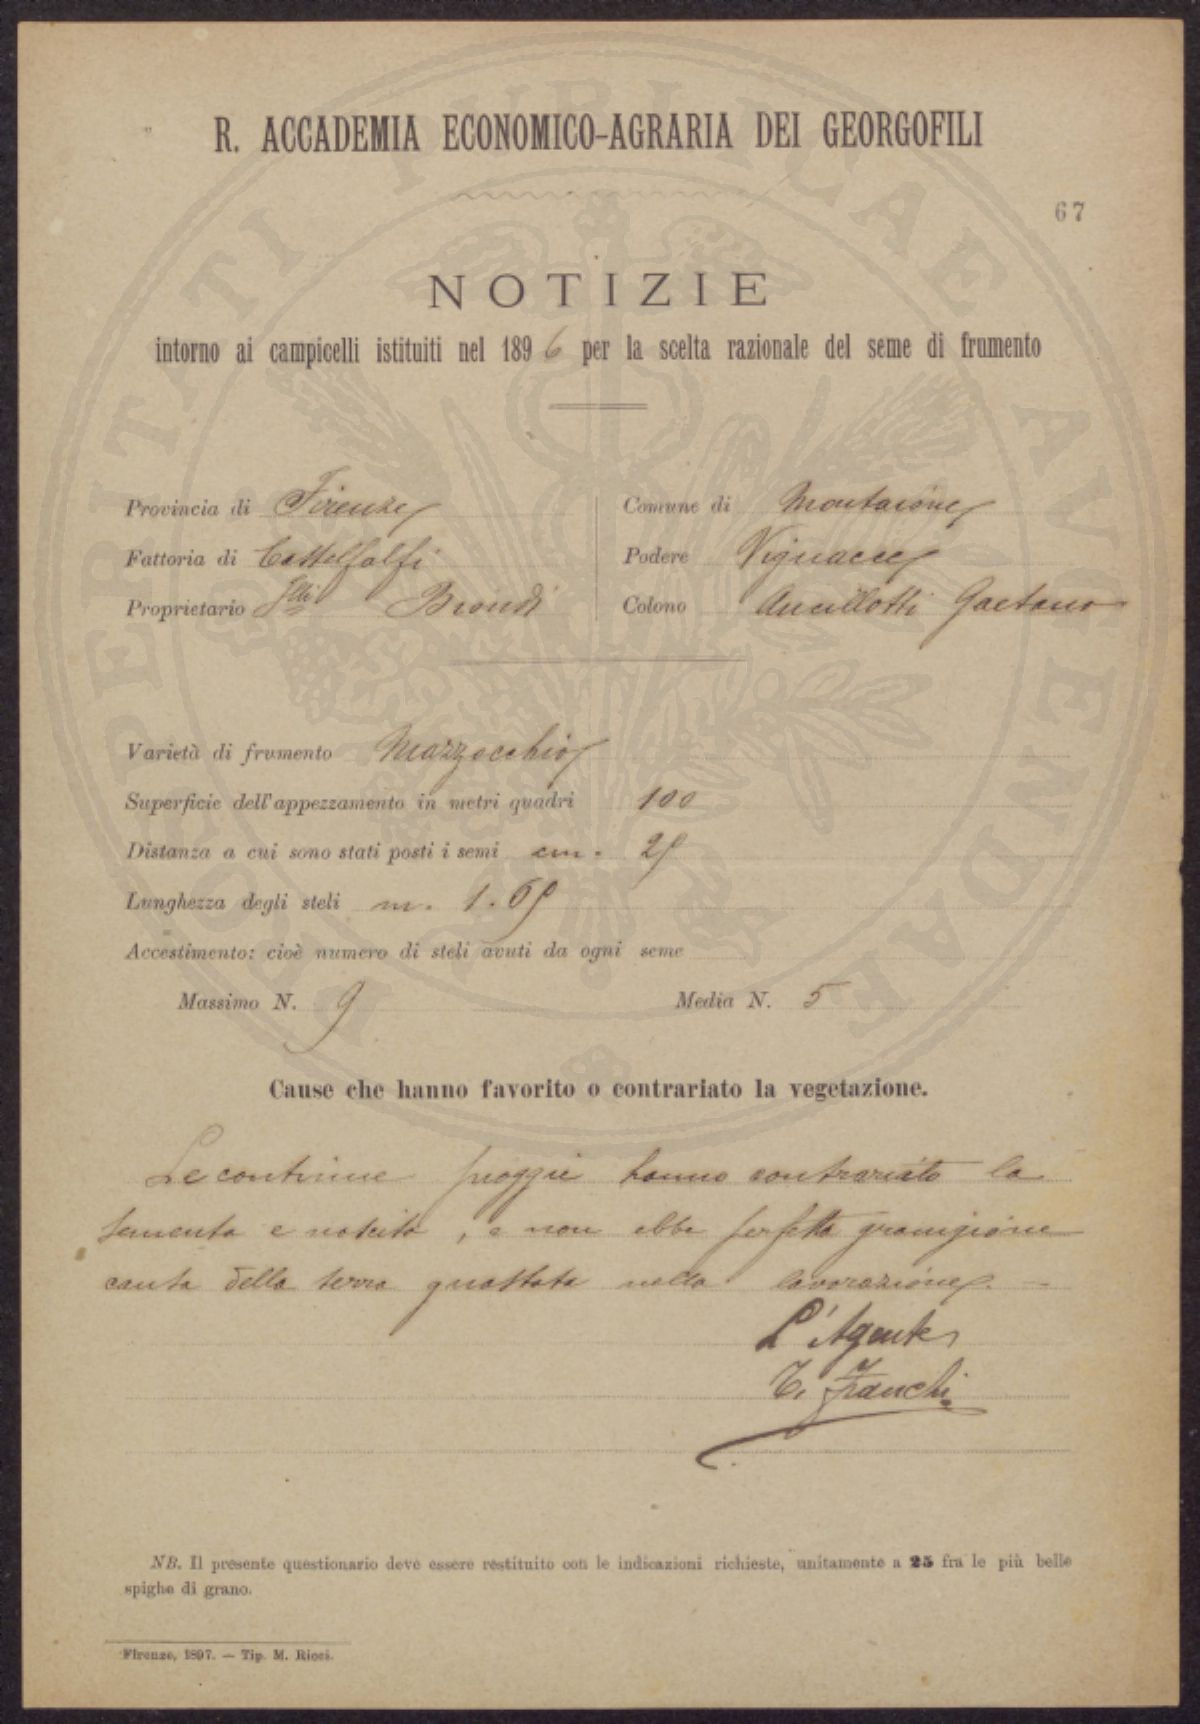 R. ACCADEMIA ECONOMICO-AGRARIA DEI GEORGOFILI
67
NOTIZIE
intorno ai campicelli istituiti nel 1896 per la scelta razionale del seme di frumento
Provincia di Firenze
Comune di Montaione
Fattoria di Castelfalfi
Podere Vignacce
Proprietario F.lli Biondi
Colono Ancillotti Gaetano
Varietà di frumento Mazzocchio
Superficie dell'appezzamento in metri quadri 100
Distanza a cui sono stati posti i semi cm. 25
Lunghezza degli steli m. 1.65
Accestimento: cioè numero di steli avuti da ogni seme
Massimo N. 9 Media N. 5
Cause che hanno favorito o contrariato la vegetazione.
Le continue pioggie hanno contrariato la
sementa e nascita, e non ebbe perfetta granigione
causa della terra guastata nella lavorazione. —
L'Agente
T. Franchi
NB. Il presente questionario deve essere restituito con le indicazioni richieste, unitamente a 25 fra le più belle
spighe di grano.
Firenze, 1897. — Tip. M. Ricci.
PROSPERITATI PUBLICAE AUGENDAE